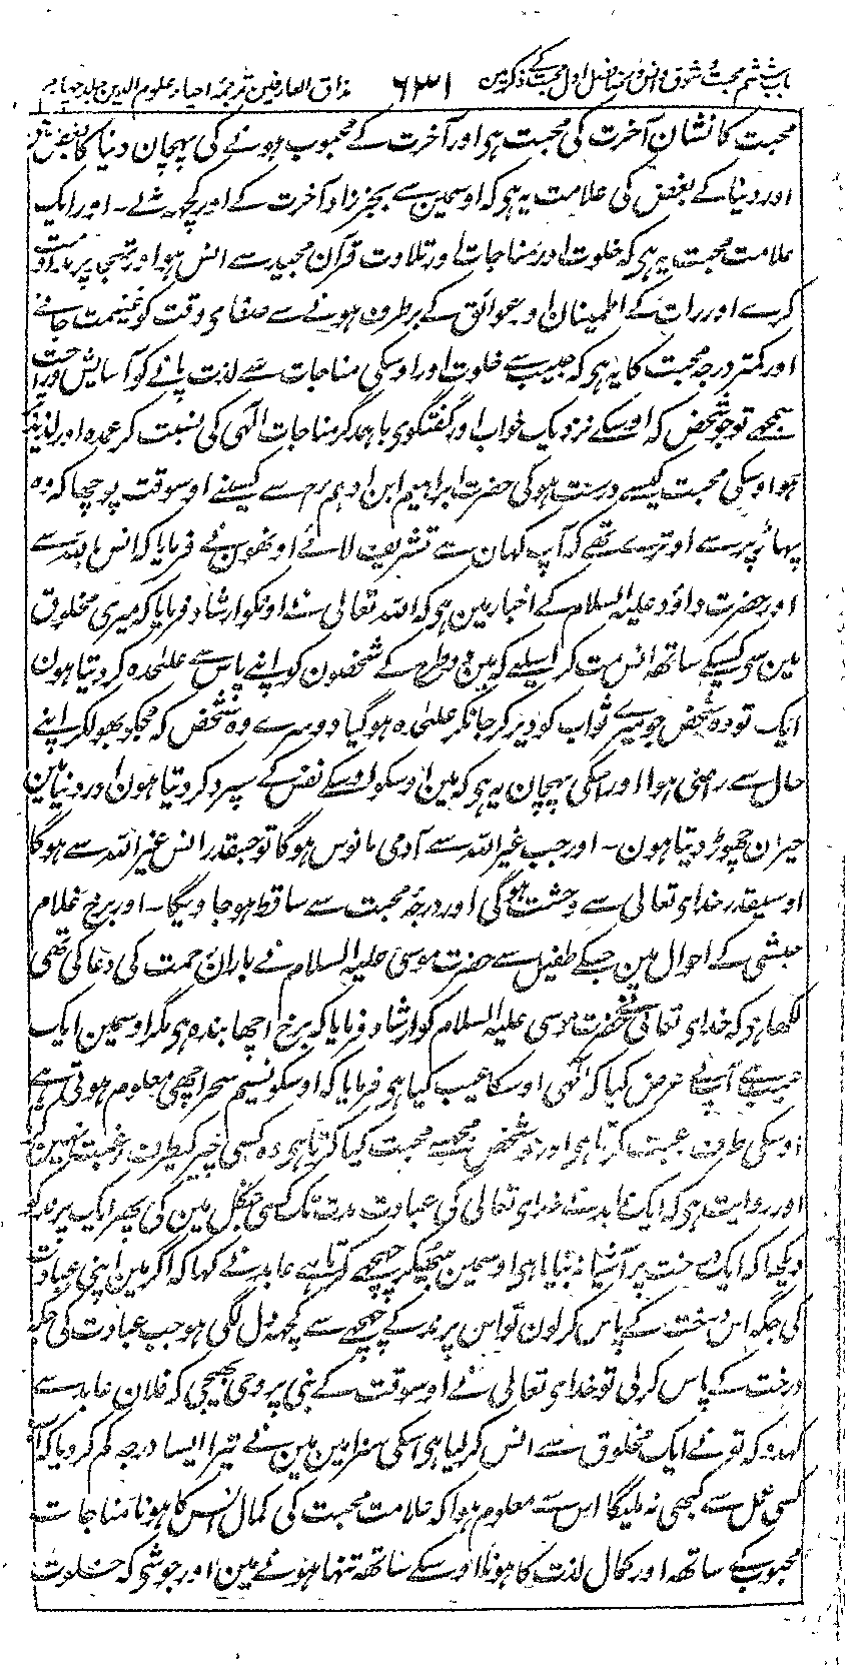 باب ششم محبت و شوق و انس و رضا فصل اول محبت کے ذکر مین ۶۳۱ مذاق العارفین ترجمۂ احیاء علوم الدین جلد چہارم
محبت کا نشان آخرت کی محبت ہو اور آخرت کے محبوب ہونے کی پہچان دنیا کا بغض ہے
اور دنیا کے بغض کی علامت یہ ہو کہ اوسمین سے بجز زاد آخرت کے اور کچھ نہ لے۔ اور ایک
علامت محبت یہ ہو کہ خلوت اور مناجات اور تلاوت قرآن مجید سے انس ہو اور تہجد پر مداومت
کرے اور رات کے اطمینان اور عوائق کے برطرف ہونے سے صفاے وقت کو غنیمت جانے
اور کمتر درجہ محبت کا یہ ہو کہ حبیب سے خلوت اور اوسکی مناجات سے لذت پانے کو آسایش اور راحت
سمجھے تو جو شخص کہ اوسکے نزدیک خواب اور گفتگوی باہمدگر مناجات الٰہی کی نسبت کر عمدہ اور لذیذ
ہو اوسکی محبت کیسے درست ہوگی حضرت ابراہیم ابن ادہم رح سے کسینے اوسوقت پوچھا کہ وہ
پہاڑ پر سے اوترے تھے کہ آپ کہان سے تشریف لائے اونھون نے فرمایا کہ انس باللہ سے
اور حضرت داؤد علیہ السلام کے اخبار مین ہو کہ اللہ تعالی نے اونکو ارشاد فرمایا کہ میری مخلوق
مین سے کسیکے ساتھ انس مت کر اسلیے کہ مین دو طرح کے شخصون کو اپنے پاس سے علیحدہ کر دیتا ہون
ایک تو وہ شخص جو میرے ثواب کو دیر کر جانکر علیحدہ ہو گیا دوسرے وہ شخص کہ مجکو بھولکر اپنے
حال سے راضی ہوا اور اسکی پہچان یہ ہو کہ مین اوسکو اوسکے نفس کے سپرد کر دیتا ہون اور دنیا مین
حیران چھوڑ دیتا ہون۔ اور جب غیر اللہ سے آدمی مانوس ہوگا تو جسقدر انس غیر اللہ سے ہوگا
اوسیقدر خداے تعالی سے وحشت ہوگی اور درجۂ محبت سے ساقط ہو جاویگا۔ اور برخ غلام
حبشی کے احوال مین جسکے طفیل سے حضرت موسی علیہ السلام نے باران رحمت کی دعا کی تھی
لکھا ہو کہ خداے تعالی نے حضرت موسی علیہ السلام کو ارشاد فرمایا کہ برخ اچھا بندہ ہو مگر اوسمین ایک
عیب ہے آپنے عرض کیا کہ الٰہی اوسکا عیب کیا ہو فرمایا کہ اوسکو نسیم سحر اچھی معلوم ہوتی ہے
اوسکی طرف محبت کرتا ہو اور جو شخص مجھسے محبت کیا کرتا ہو وہ کسی چیز کیطرف رغبت نہین کرتا
اور روایت ہو کہ ایک عابد نے خداے تعالی کی عبادت مدت تک کسی جنگل مین کی پھر ایک پرند کو
دیکھا کہ ایک درخت پر آشیانہ بنایا ہو اوسمین بیٹھکر چہچہے کرتا ہے عابد نے کہا کہ اگر مین اپنی عبادت
کی جگہ اس درخت کے پاس کر لون تو اس پرند کے چہچہے سے کچھ دل لگی ہو جب عبادت کی جگہ
درخت کے پاس کر لی تو خداے تعالی نے اوسوقت کے نبی پر وحی بھیجی کہ فلان عابد سے
کہدو کہ تو نے ایک مخلوق سے انس کر لیا ہو اسکی سزا مین مین نے تیرا ایسا درجہ کم کر دیا کہ اب
کسی عمل سے کبھی نہ ملیگا اس سے معلوم ہوا کہ علامت محبت کی کمال انس کا ہونا مناجات
محبوب کے ساتھ اور کمال لذت کا ہونا اوسکے ساتھ تنہا ہونے مین اور جو شی کہ خلوت